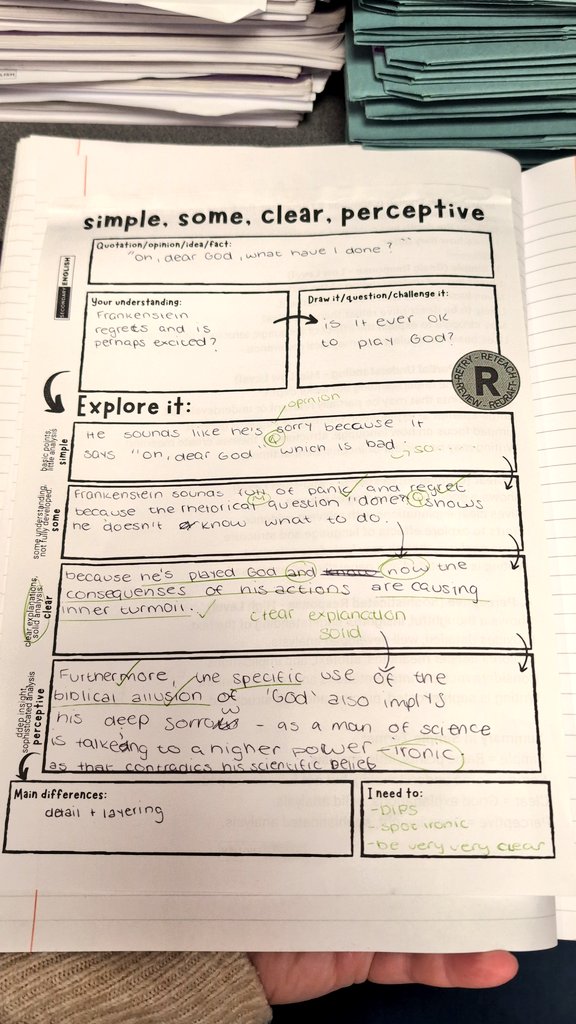 simple, some, clear, perceptive
SECONDARY ENGLISH
Quotation/opinion/idea/fact:
"Oh, dear God, what have I done?"
Your understanding:
Frankenstein
regrets and is
perhaps excited?
Draw it/question/challenge it:
is it ever OK
to play God?
RETRY - RETEACH
REVIEW - REDRAFT
R
Explore it:
opinion
basic points, little analysis
simple
He sounds like he's sorry because it
says "oh, dear God" which is bad.
so......
some understanding, not fully developed
some
Frankenstein sounds full of panic and regret
because the rhetorical question "done?" shows
he doesn't know what to do.
clear explanations, solid analysis
clear
because he's played God and now the
consequences of his actions are causing
inner turmoil.
clear explanation
solid
ddep insight, sophisticated analysis
perceptive
Furthermore, the specific use of the
biblical allusion of 'God' also implys
his deep sorrow - as a man of science
is talking to a higher power - ironic
as that contradics his scientific belief
Main differences:
detail + layering
I need to:
- DIPS
- spot ironic
- be very very clear